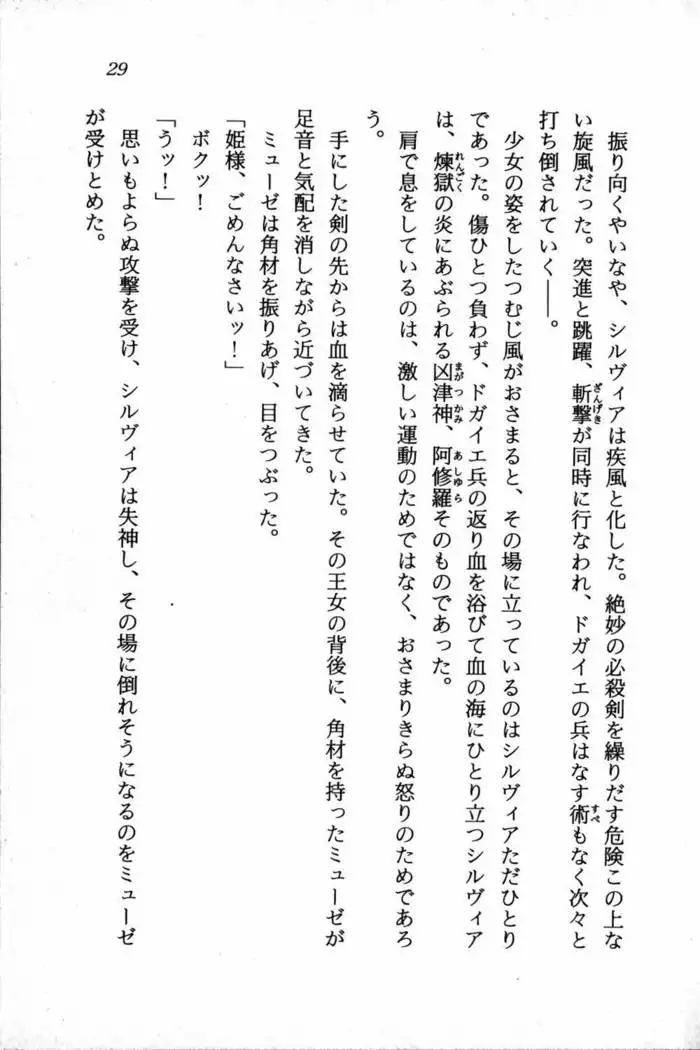 29
振り向くやいなや、シルヴィアは疾風と化した。絶妙の必殺剣を繰りだす危険この上な
い旋風だった。突進と跳躍、斬撃が同時に行なわれ、ドガイエの兵はなす術もなく次々と
打ち倒されていく――。
少女の姿をしたつむじ風がおさまると、その場に立っているのはシルヴィアただひとり
であった。傷ひとつ負わず、ドガイエ兵の返り血を浴びて血の海にひとり立つシルヴィア
は、煉獄の炎にあぶられる凶津神、阿修羅そのものであった。
肩で息をしているのは、激しい運動のためではなく、おさまりきらぬ怒りのためであろ
う。
手にした剣の先からは血を滴らせていた。その王女の背後に、角材を持ったミューゼが
足音と気配を消しながら近づいてきた。
ミューゼは角材を振りあげ、目をつぶった。
「姫様、ごめんなさいッ！」
ボクッ！
「うッ！」
思いもよらぬ攻撃を受け、シルヴィアは失神し、その場に倒れそうになるのをミューゼ
が受けとめた。